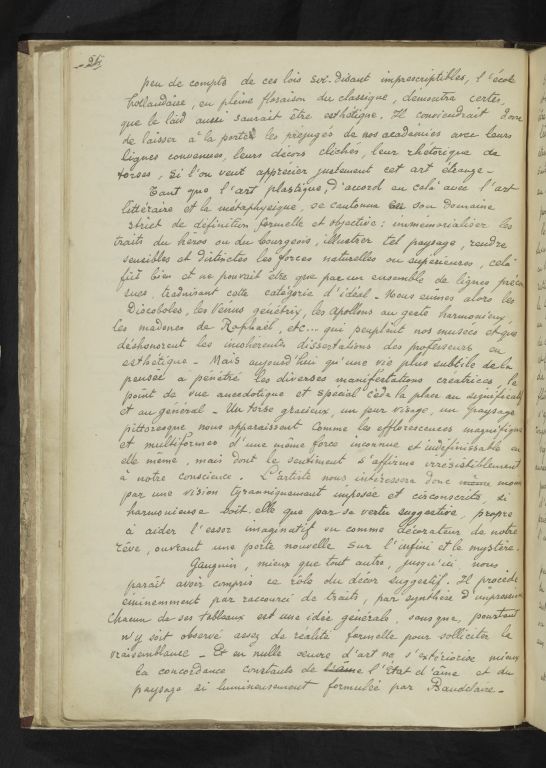 peu de compte de ces lois soi-disant imprescriptibles, l'école
hollandaise, en pleine floraison du classique, démontra certes,
que le laid aussi saurait être esthétique. Il conviendrait donc
de laisser à la porte les préjugés de nos académies avec leurs
lignes convenues, leurs décors clichés, leur rhétorique de
torses, si l'on veut apprécier justement cet art étrange -
Tant que l'art plastique, d'accord en celà avec l'art
littéraire et la métaphysique, se cantonna en son domaine
strict de définition formelle et objective : immémorialiser les
traits du héros ou du bourgeois, illustrer tel paysage, rendre
sensibles et distincts les forces naturelles ou supérieures, celà
fût bien et ne pouvait être que par un ensemble de lignes préco
nues, traduisant cette catégorie d'idéal - Nous eûmes alors les
Discoboles, les Vénus génétrix, les Apollons au geste harmonieux,
les madones de Raphaël, etc... qui peuplent nos musées et que
déshonorent les incohérentes dissertations des professeurs en
esthétique - Mais aujourd'hui qu'une vie plus subtile de la
pensée a pénétré les diverses manifestations créatrices, le
point de vue anecdotique et spécial cède la place au significatif
et au général - Un torse gracieux, un pur visage, un paysage
pittoresque nous apparaissent comme les efflorescences magnifiques
et multiformes d'une même force inconnue et indéfinissable en
elle même, mais dont le sentiment s'affirme irrésistiblement
à notre conscience. L'artiste nous intéressera donc moins
par une vision tyranniquement imposée et circonscrite, si
harmonieuse soit-elle que par sa vertu suggestive, propre
à aider l'essor imaginatif ou comme décorateur de notre
rêve, ouvrant une porte nouvelle sur l'infini et le mystère.
Gauguin, mieux que tout autre, jusqu'ici nous
paraît avoir compris ce rôle du décor suggestif. Il procède
éminemment par raccourci de traits, par synthèse d'impressions
Chacun de ses tableaux est une idée générale, sans que, pourtant
n'y soit observé assez de réalité formelle pour solliciter la
vraisemblance - Et en nulle œuvre d'art ne s'extériorise mieux
la concordance constante de l'État d'âme et du
paysage si lumineusement formulée par Baudelaire -